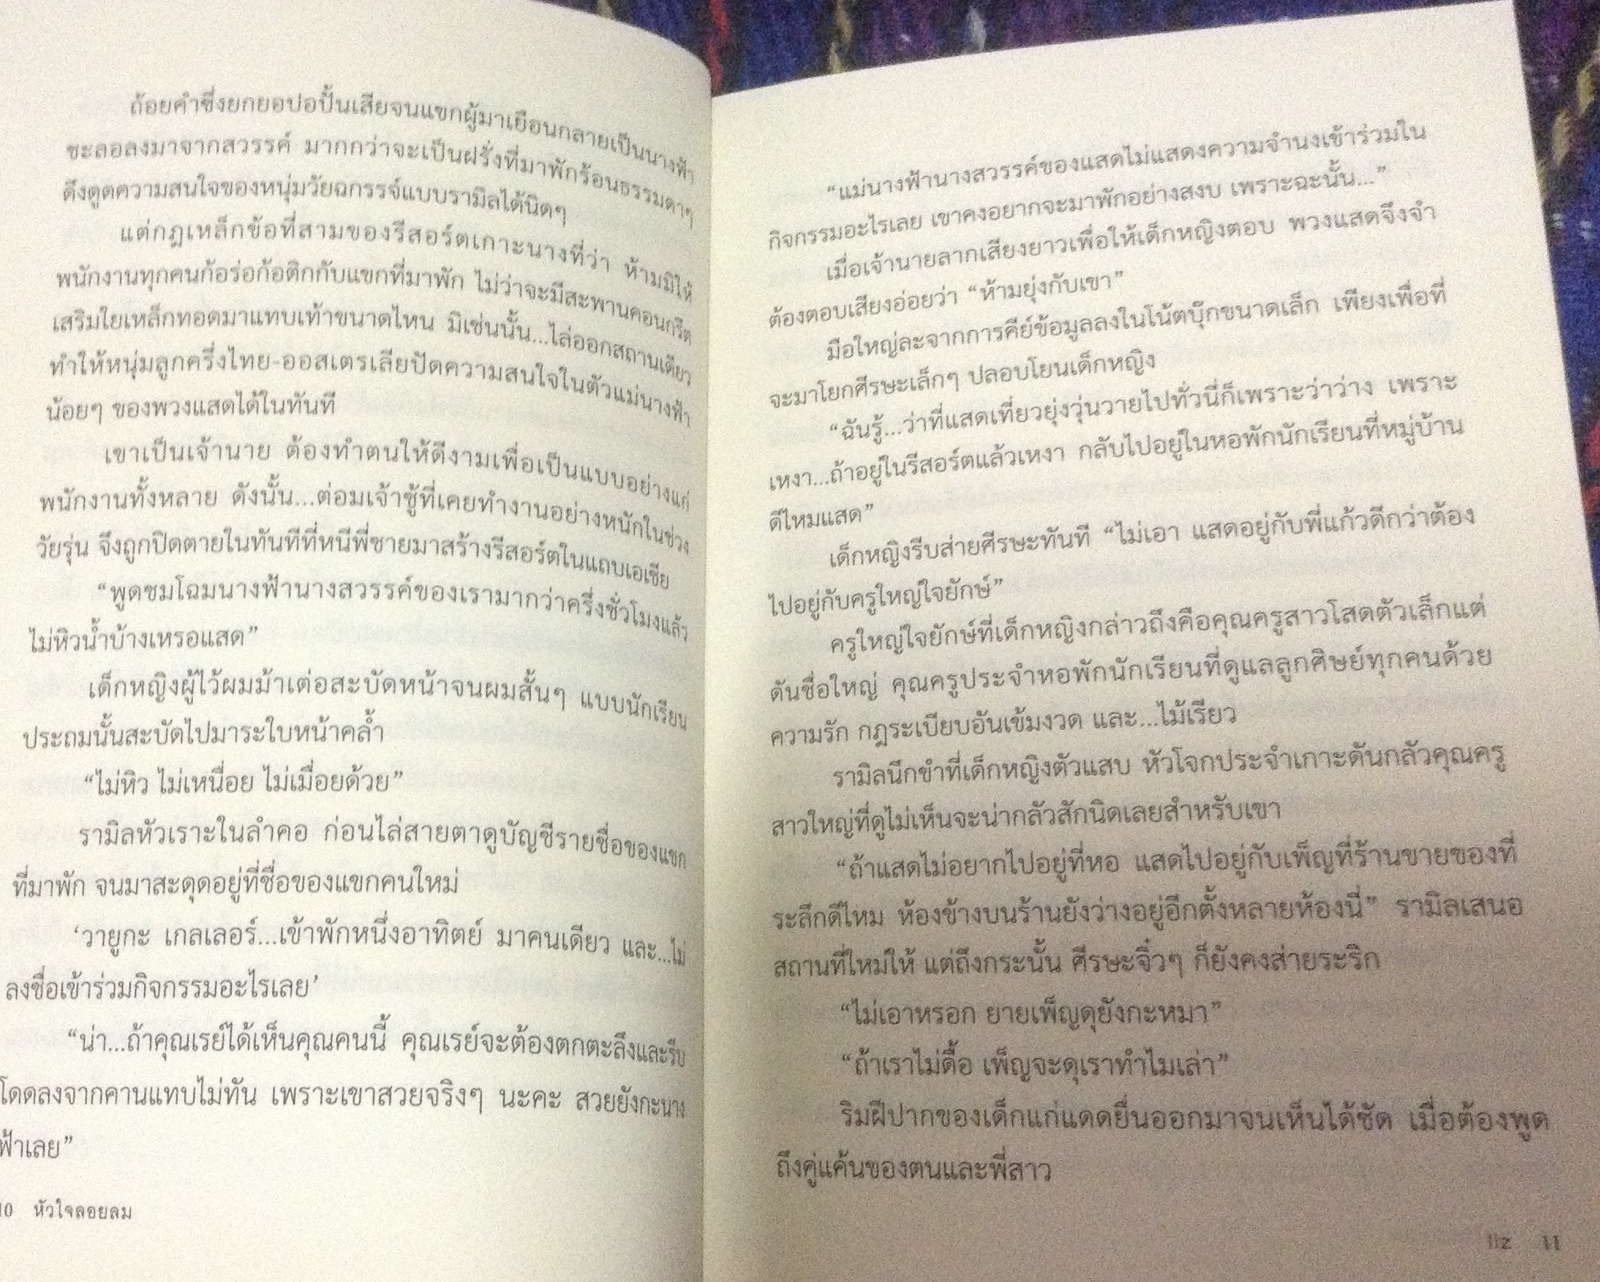 ถ้อยคำซึ่งยกยอปอปั้นเสียจนแขกผู้มาเยือนกลายเป็นนางฟ้า
ชะลอลงมาจากสวรรค์ มากกว่าจะเป็นฝรั่งที่มาพักร้อนธรรมดาๆ
ดึงดูดความสนใจของหนุ่มวัยฉกรรจ์แบบรามิลได้นิดๆ
แต่กฎเหล็กข้อที่สามของรีสอร์ตเกาะนางที่ว่า ห้ามมิให้
พนักงานทุกคนก้อร่อก้อติกกับแขกที่มาพัก ไม่ว่าจะมีสะพานคอนกรีต
เสริมใยเหล็กทอดมาแทบเท้าขนาดไหน มิเช่นนั้น...ไล่ออกสถานเดียว
ทำให้หนุ่มลูกครึ่งไทย-ออสเตรเลียปัดความสนใจในตัวแม่นางฟ้า
น้อยๆ ของพวงแสดได้ในทันที
เขาเป็นเจ้านาย ต้องทำตนให้ดีงามเพื่อเป็นแบบอย่างแก่
พนักงานทั้งหลาย ดังนั้น...ต่อมเจ้าชู้ที่เคยทำงานอย่างหนักในช่วง
วัยรุ่น จึงถูกปิดตายในทันทีที่หนีพี่ชายมาสร้างรีสอร์ตในแถบเอเชีย
“พูดชมโฉมนางฟ้านางสวรรค์ของเรามากว่าครึ่งชั่วโมงแล้ว
ไม่หิวน้ำบ้างเหรอแสด”
เด็กหญิงผู้ไว้ผมม้าเต่อสะบัดหน้าจนผมสั้นๆ แบบนักเรียน
ประถมนั้นสะบัดไปมาระใบหน้าคล้ำ
“ไม่หิว ไม่เหนื่อย ไม่เมื่อยด้วย”
รามิลหัวเราะในลำคอ ก่อนไล่สายตาดูบัญชีรายชื่อของแขก
ที่มาพัก จนมาสะดุดอยู่ที่ชื่อของแขกคนใหม่
‘วายูกะ เกลเลอร์...เข้าพักหนึ่งอาทิตย์ มาคนเดียว และ...ไม่
ลงชื่อเข้าร่วมกิจกรรมอะไรเลย’
“น่า...ถ้าคุณเรย์ได้เห็นคุณคนนี้ คุณเรย์จะต้องตกตะลึงและรีบ
โดดลงจากคานแทบไม่ทัน เพราะเขาสวยจริงๆ นะคะ สวยยังกะนาง
ฟ้าเลย”
10 หัวใจลอยลม
“แม่นางฟ้านางสวรรค์ของแสดไม่แสดงความจำนงเข้าร่วมใน
กิจกรรมอะไรเลย เขาคงอยากจะมาพักอย่างสงบ เพราะฉะนั้น...”
เมื่อเจ้านายลากเสียงยาวเพื่อให้เด็กหญิงตอบ พวงแสดจึงจำ
ต้องตอบเสียงอ่อยว่า “ห้ามยุ่งกับเขา”
มือใหญ่ละจากการคีย์ข้อมูลลงในโน้ตบุ๊กขนาดเล็ก เพียงเพื่อที่
จะมาโยกศีรษะเล็กๆ ปลอบโยนเด็กหญิง
“ฉันรู้...ว่าที่แสดเที่ยวยุ่งวุ่นวายไปทั่วนี่ก็เพราะว่าว่าง เพราะ
เหงา...ถ้าอยู่ในรีสอร์ตแล้วเหงา กลับไปอยู่ในหอพักนักเรียนที่หมู่บ้าน
ดีไหมแสด”
เด็กหญิงรีบส่ายศีรษะทันที “ไม่เอา แสดอยู่กับพี่แก้วดีกว่าต้อง
ไปอยู่กับครูใหญ่ใจยักษ์”
ครูใหญ่ใจยักษ์ที่เด็กหญิงกล่าวถึงคือคุณครูสาวโสดตัวเล็กแต่
ดันชื่อใหญ่ คุณครูประจำหอพักนักเรียนที่ดูแลลูกศิษย์ทุกคนด้วย
ความรัก กฎระเบียบอันเข้มงวด และ...ไม้เรียว
รามิลนึกขำที่เด็กหญิงตัวแสบ หัวโจกประจำเกาะดันกลัวคุณครู
สาวใหญ่ที่ดูไม่เห็นจะน่ากลัวสักนิดเลยสำหรับเขา
“ถ้าแสดไม่อยากไปอยู่ที่หอ แสดไปอยู่กับเพ็ญที่ร้านขายของที่
ระลึกดีไหม ห้องข้างบนร้านยังว่างอยู่อีกตั้งหลายห้องนี่” รามิลเสนอ
สถานที่ใหม่ให้ แต่ถึงกระนั้น ศีรษะจิ๋วๆ ก็ยังคงส่ายระริก
“ไม่เอาหรอก ยายเพ็ญดุยังกะหมา”
“ถ้าเราไม่ดื้อ เพ็ญจะดุเราทำไมเล่า”
ริมฝีปากของเด็กแก่แดดยื่นออกมาจนเห็นได้ชัด เมื่อต้องพูด
ถึงคู่แค้นของตนและพี่สาว
liz 11